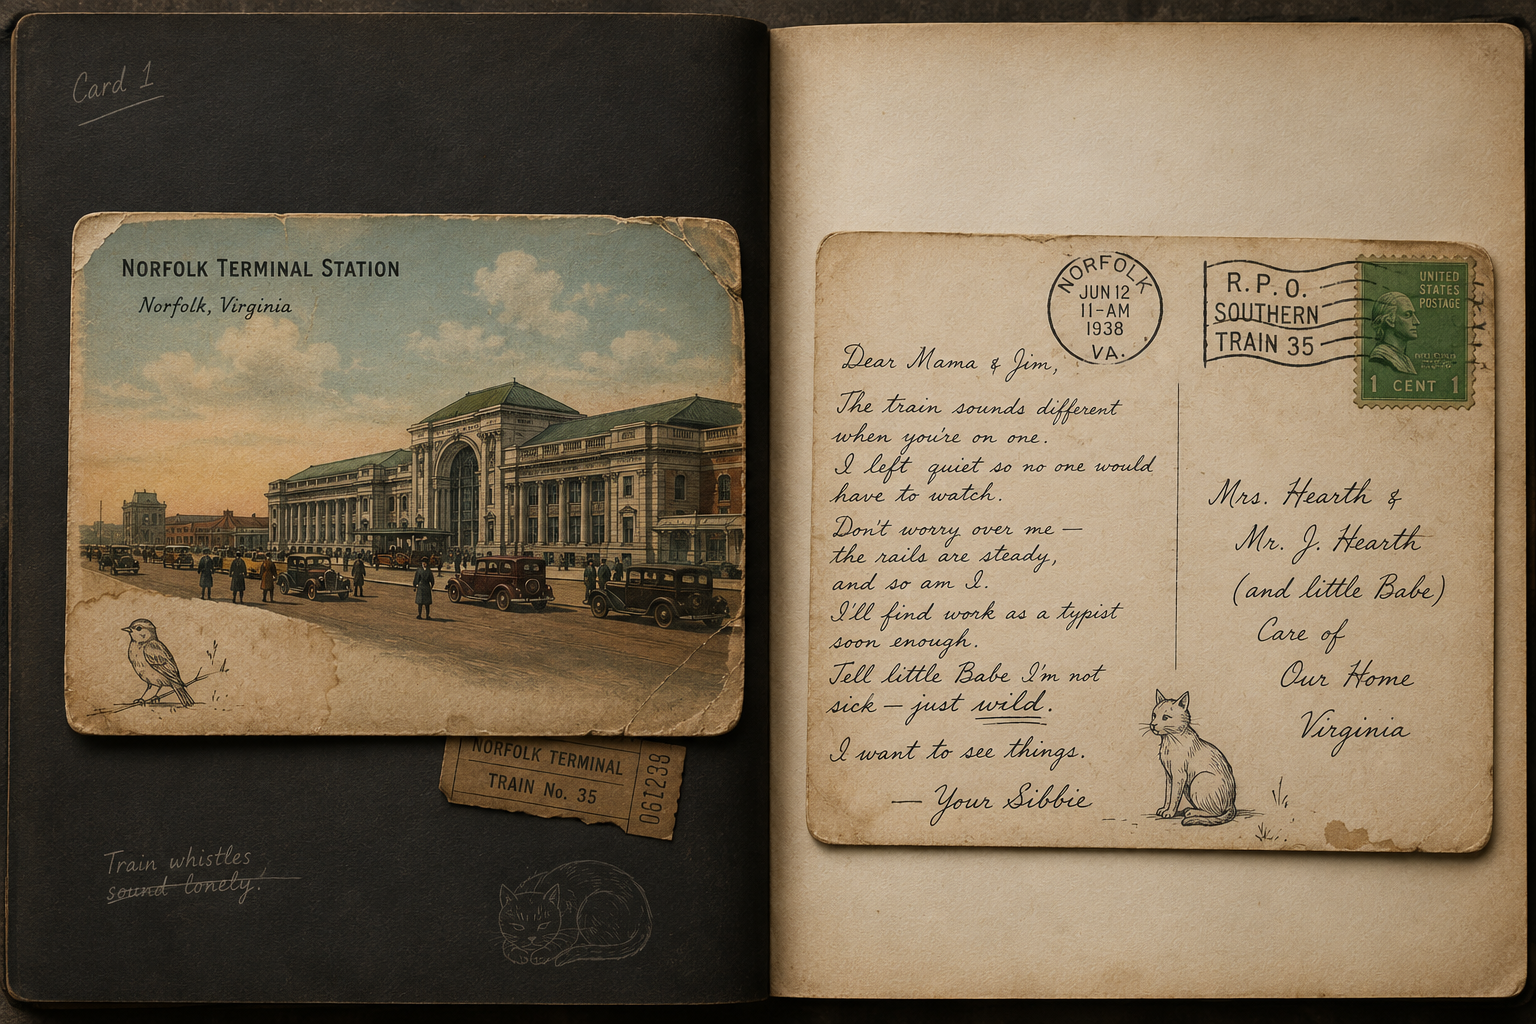 Card 1
NORFOLK TERMINAL STATION
Norfolk, Virginia
NORFOLK TERMINAL
TRAIN No. 35
061238
Train whistles
sound lonely.
NORFOLK
JUN 12
11-AM
1938
VA.
R. P. O.
SOUTHERN
TRAIN 35
UNITED
STATES
POSTAGE
1 CENT 1
Dear Mama & Jim,
The train sounds different
when you're on one.
I left quiet so no one would
have to watch.
Don't worry over me —
the rails are steady,
and so am I.
I'll find work as a typist
soon enough.
Tell little Babe I'm not
sick — just wild.
I want to see things.
— Your Sibbie
Mrs. Hearth &
Mr. J. Hearth
(and little Babe)
Care of
Our Home
Virginia